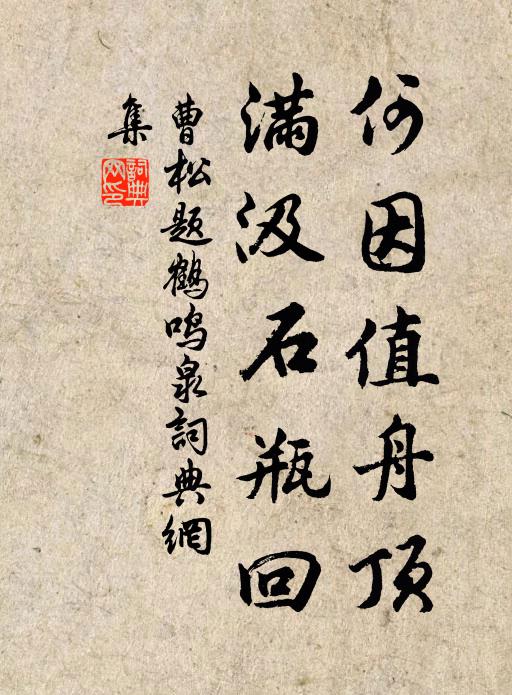 何因值舟顶
满汲石瓶回
曹松题鹤鸣泉詞典網
集
詞典
网印